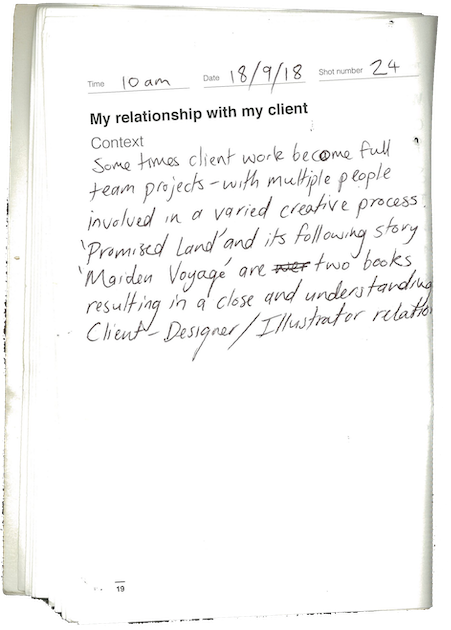 Time 10am Date 18/9/18 Shot number 24
My relationship with my client
Context
Some times client work become full
team projects - with multiple people
involved in a varied creative process.
'Promised Land' and its following story
'Maiden Voyage' are two books
resulting in a close and understanding
Client - Designer/Illustrator relatio
19